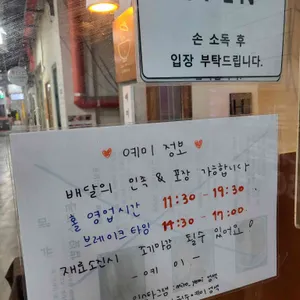 OPEN
손 소독 후
입장 부탁드립니다.
예미 정보
배달의 민족 & 포장 가능합니다
홀 영업시간 11:30 - 19:30
브레이크 타임 14:30 - 17:00
재료소진시 조기마감 될수 있어요
- 예미 -
인스타그램